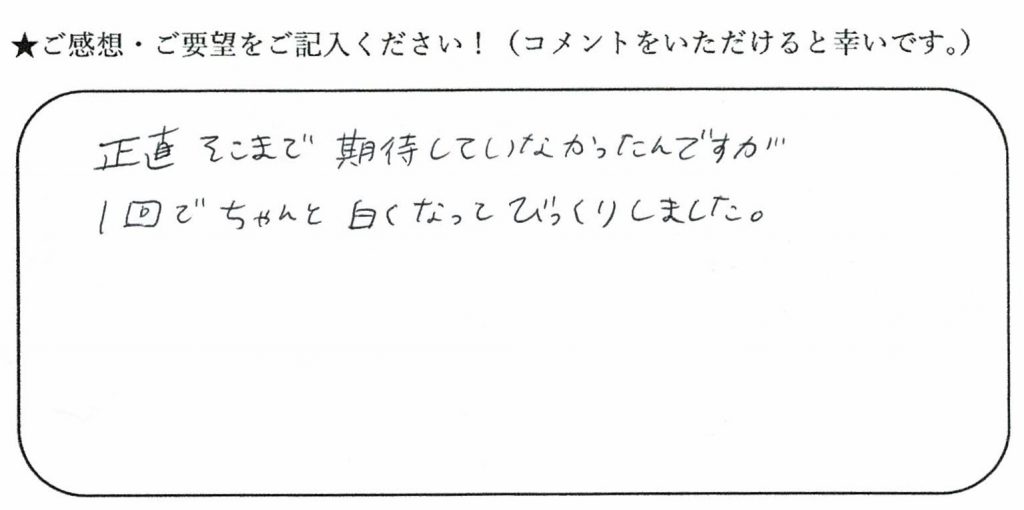 ★ご感想・ご要望をご記入ください！（コメントをいただけると幸いです。）
正直 そこまで 期待していなかったんですが
1回で ちゃんと 白くなって びっくりしました。